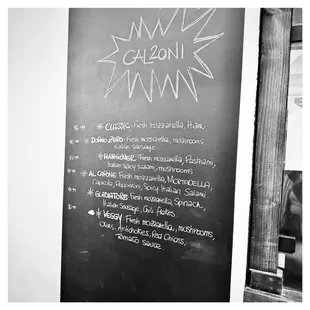 CALZONI
* CLASSIC: Fresh mozzarella, Ham
* DOPPIO ZERO: Fresh mozzarella, mushrooms,
Italian sausage
* HANGOVER: Fresh mozzarella, Pastrami,
Italian spicy salami, mushrooms
* AL CAPONE: Fresh mozzarella, MORTADELLA,
Capicola, Pepperoni, Spicy Italian Salami
* GLADIATORE: Fresh mozzarella, Spinach,
Italian Sausage, Chili flakes.
* VEGGY: Fresh mozzarella, mushrooms,
Olives, Artichokes, Red Onions,
Tomato sauce.